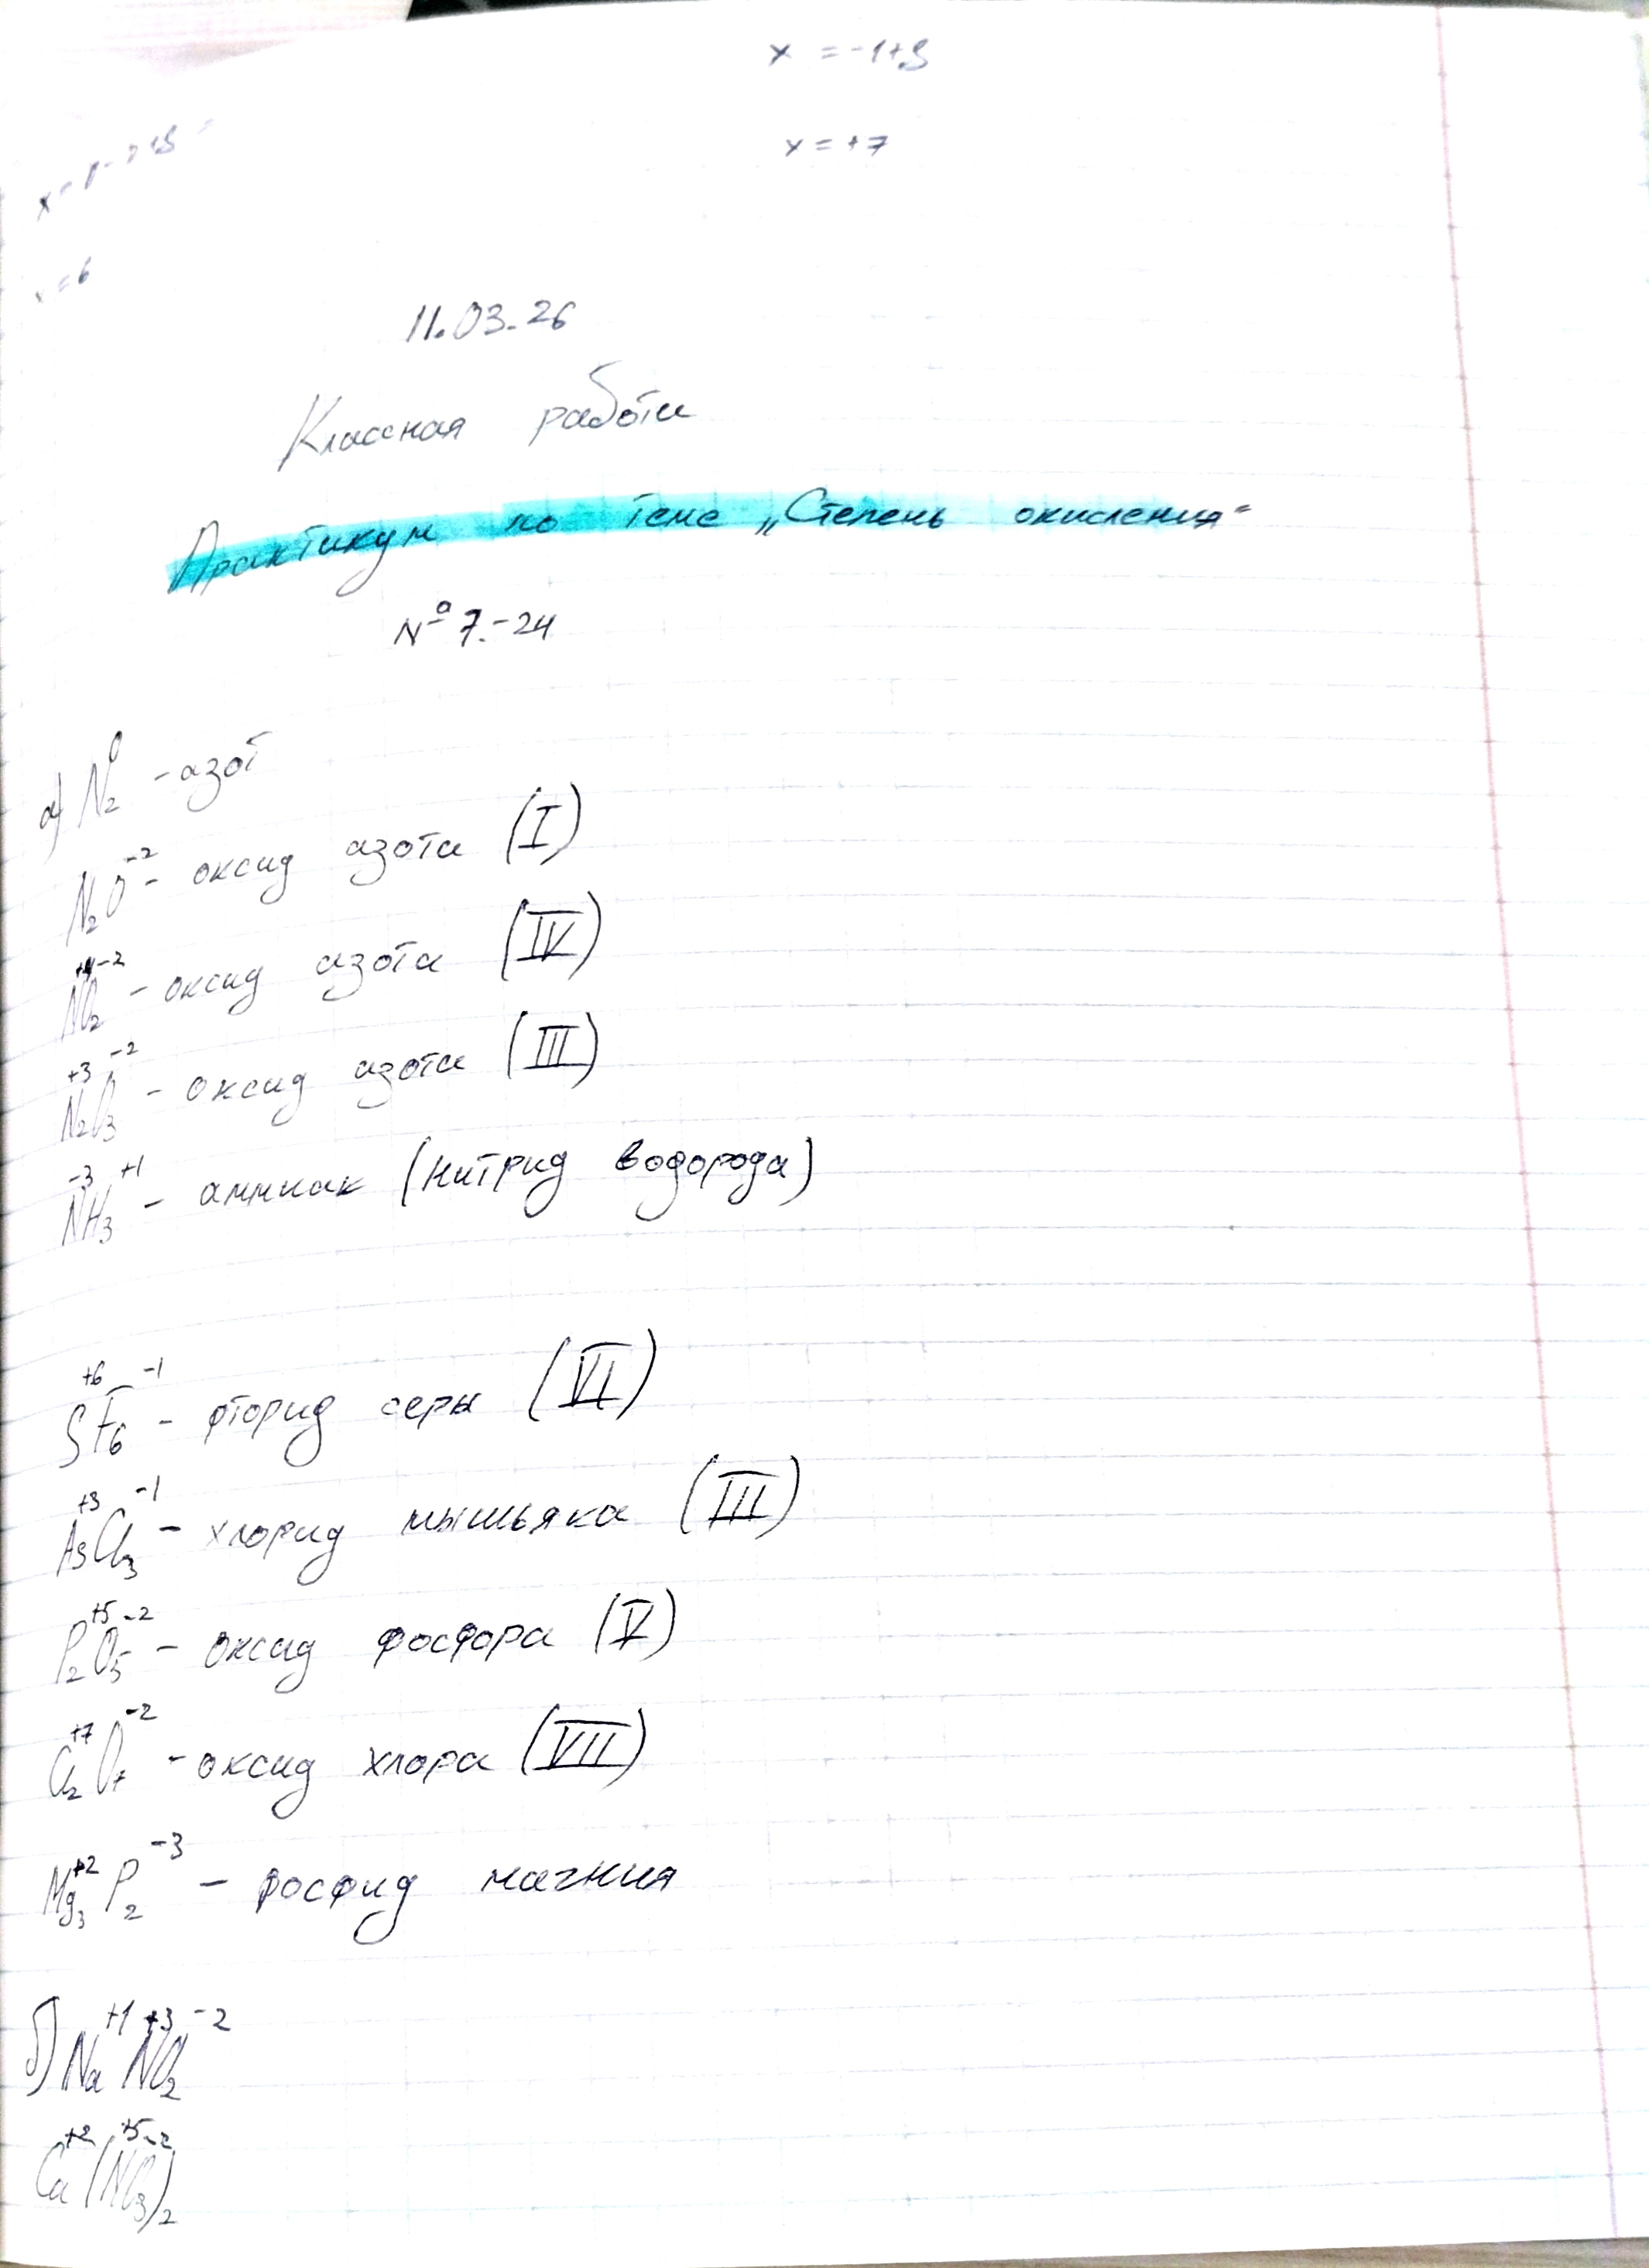 x = -1+8
x = +7
x=6
11.03.26
Классная работа
Практикум по теме „Степень окисления"
№ 7.-24
а) N₂⁰ - азот
N₂O⁻² - оксид азота (I)
N⁺⁴O₂⁻² - оксид азота (IV)
N₂⁺³O₃⁻² - оксид азота (III)
N⁻³H₃⁺¹ - аммиак (нитрид водорода)
S⁺⁶F₆⁻¹ - фторид серы (VI)
As⁺³Cl₃⁻¹ - хлорид мышьяка (III)
P₂⁺⁵O₅⁻² - оксид фосфора (V)
Cl₂⁺⁷O₇⁻² - оксид хлора (VII)
Mg₃⁺²P₂⁻³ - фосфид магния
б) Na⁺¹N⁺³O₂⁻²
Ca⁺²(N⁺⁵O₃⁻²)₂